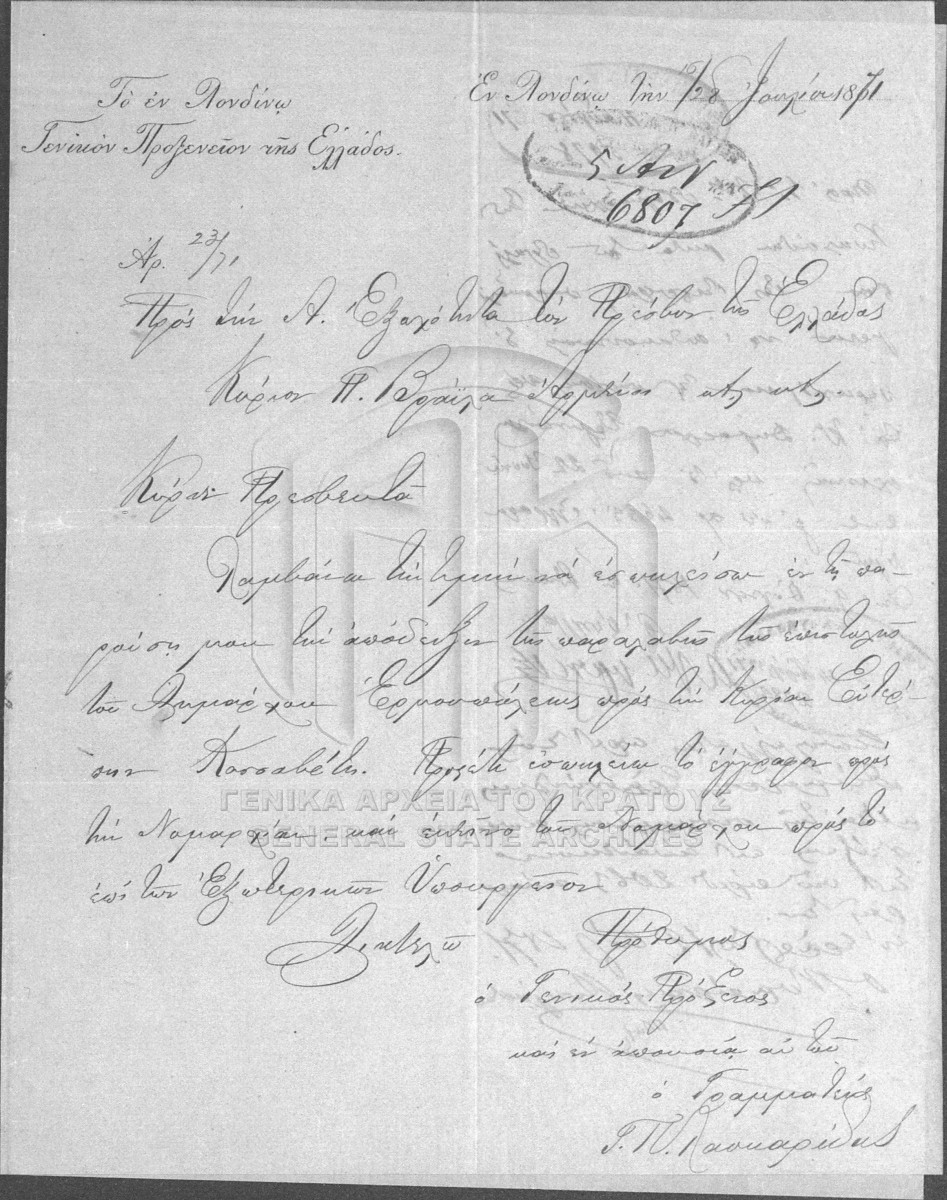 Τὸ ἐν Λονδίνῳ
Γενικὸν Προξενεῖον τῆς Ἑλλάδος.
Ἐν Λονδίνῳ τὴν 28 Ἰουλίου 1871
5 Αυγ
6807
Ἀρ. 23/71
Πρὸς τὴν Α. Ἐξοχότητα τὸν Πρέσβυν τῆς Ἑλλάδος
Κύριον Π. Βράϊλα Ἀρμένην κτλ κτλ
Κύριε Πρεσβευτὰ
Λαμβάνω τὴν τιμὴν νὰ ἐσωκλείσω ἐν τῇ πα-
ρούσῃ μου τὴν ἀπόδειξιν τῆς παραλαβῆς τῆς ἐπιστολῆς
τοῦ Δημάρχου Ἑρμουπόλεως πρὸς τὴν Κυρίαν Εὐτέρ-
πην Κασσαβέτη. Προσέτι ἐσωκλείω τὸ ἔγγραφον πρὸς
τὴν Νομαρχίαν, καὶ ἐκεῖνο τοῦ Νομάρχου πρὸς τὸ
ἐπὶ τῶν Ἐξωτερικῶν Ὑπουργεῖον
Διατελῶ Πρόθυμος
ὁ Γενικὸς Πρόξενος
καὶ ἐν ἀπουσίᾳ αὐτοῦ
ὁ Γραμματεὺς
Γ. Π. Λασκαρίδης
ΓΕΝΙΚΑ ΑΡΧΕΙΑ ΤΟΥ ΚΡΑΤΟΥΣ
GENERAL STATE ARCHIVES